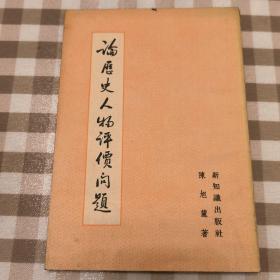 論歷史人物評價問題
陳旭麓著
新知識出版社